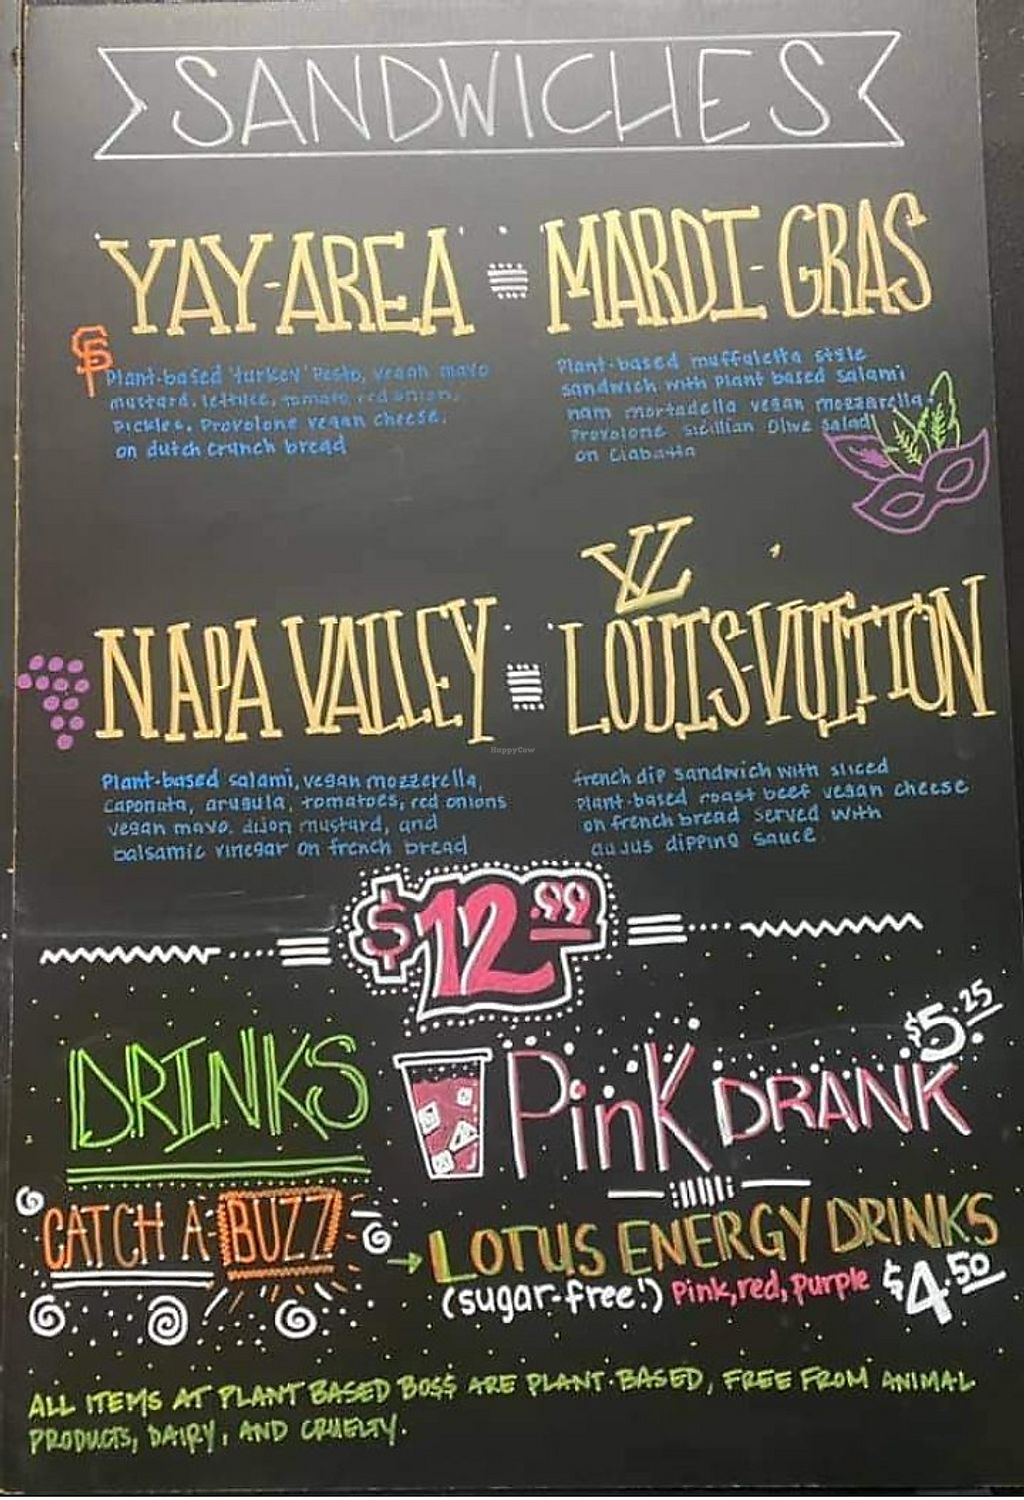 SANDWICHES
YAY-AREA
SF
Plant-based 'turkey' Pesto, vegan mayo
mustard, lettuce, tomato red onion,
Pickles, Provolone vegan cheese,
on dutch crunch bread
MARDI-GRAS
Plant-based muffuletta style
sandwich with Plant based salami
ham mortadella vegan mozzarella,
Provolone sicillian Olive salad
on Ciabatta
NAPA VALLEY
Plant-based salami, vegan mozzerella,
Caponata, arugula, tomatoes, red onions
vegan mayo, dijon mustard, and
balsamic vinegar on french bread
LV
LOUIS-VUITTON
french dip sandwich with sliced
Plant-based roast beef vegan cheese
on french bread served with
au jus dipping sauce
HappyCow
$12.99
DRINKS
Pink DRANK $5.25
CATCH A BUZZ
LOTUS ENERGY DRINKS
(sugar-free!) Pink, red, purple $4.50
ALL ITEMS AT PLANT BASED BO$$ ARE PLANT-BASED, FREE FROM ANIMAL
PRODUCTS, DAIRY, AND CRUELTY.